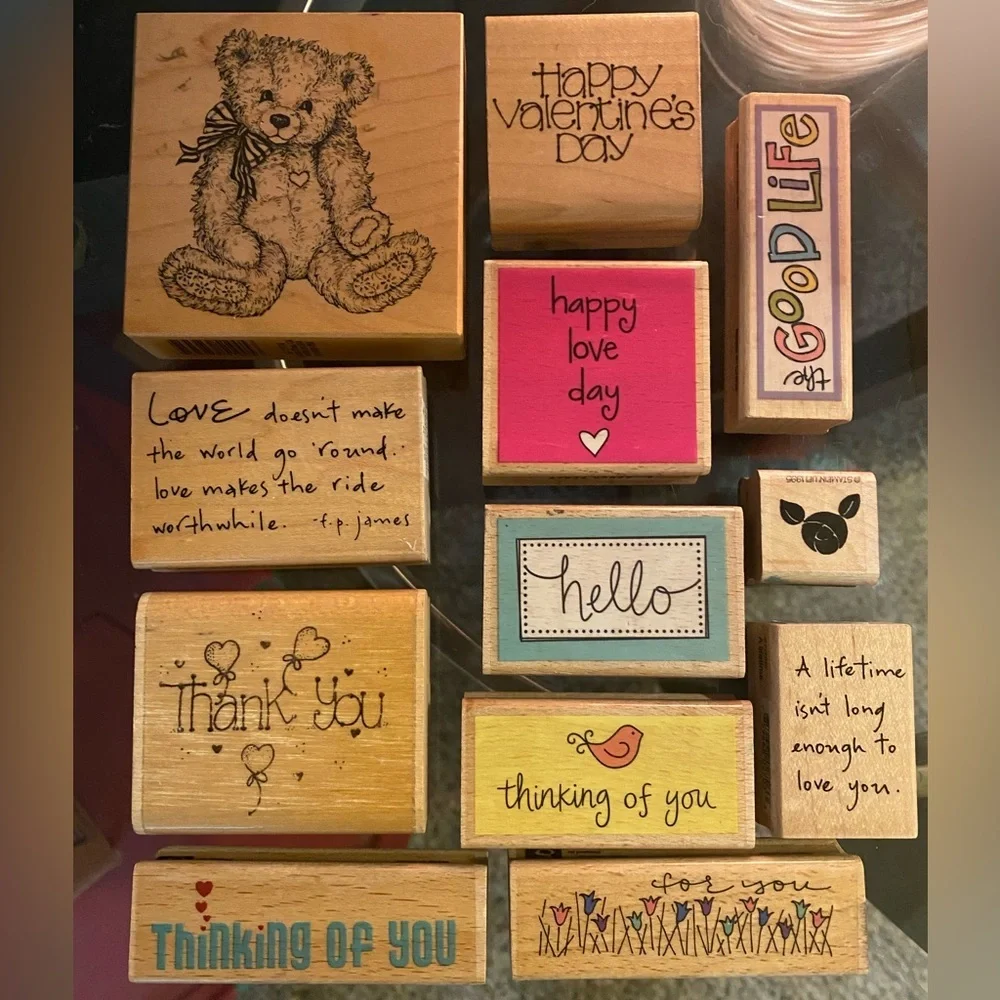 Happy
Valentine's
Day
the GOOD LiFe
happy
love
day
LOVE doesn't make
the world go 'round.
love makes the ride
worthwhile. -f.p. james
© STAMPIN' UP! 1995
hello
Thank You
A lifetime
isn't long
enough to
love you.
thinking of you
Thinking OF YOU
for you